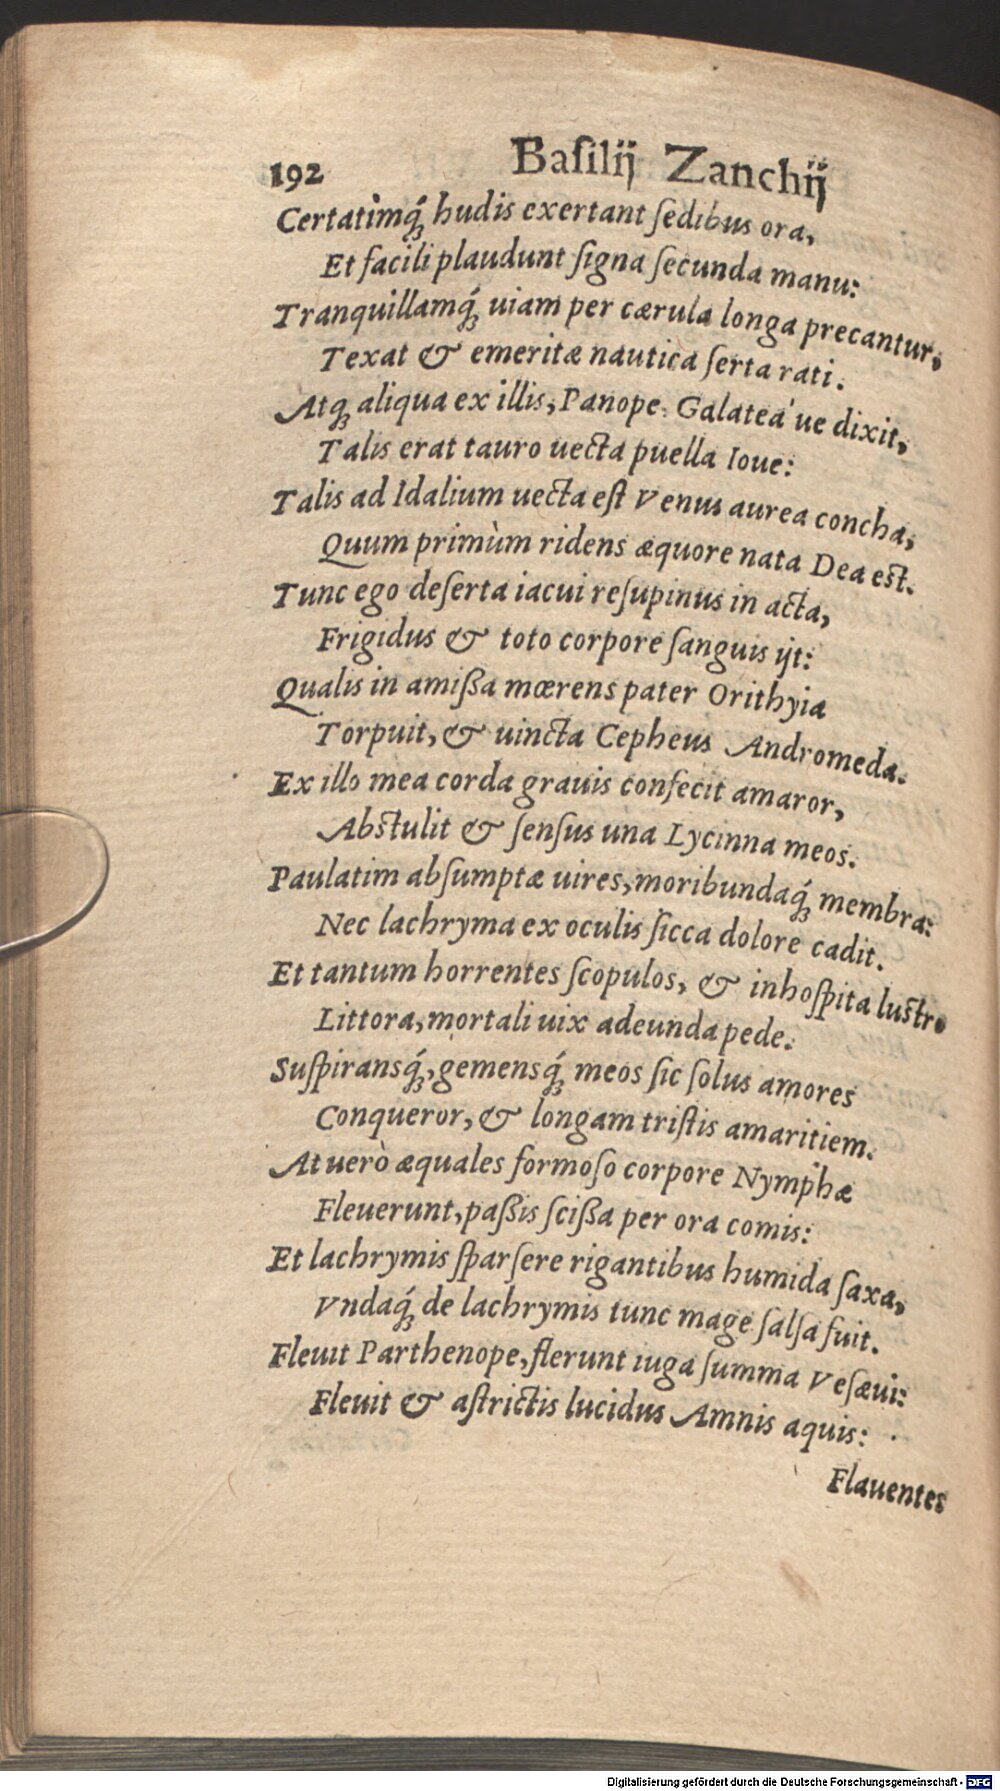 192 Baſilĳ Zanchĳ
Certatimq́ꝫ hudis exertant ſedibus ora,
Et facili plaudunt ſigna ſecunda manu:
Tranquillamq́ꝫ uiam per cærula longa precantur,
Texat & emeritæ nautica ſerta rati.
Atqꝫ aliqua ex illis, Panope. Galatea' ue dixit,
Talis erat tauro uecta puella Ioue:
Talis ad Idalium uecta eſt Venus aurea concha,
Quum primùm ridens æquore nata Dea est.
Tunc ego deſerta iacui reſupinus in acta,
Frigidus & toto corpore ſanguis ĳt:
Qualis in amißa mœrens pater Orithyia
Torpuit, & uincta Cepheus Andromeda.
Ex illo mea corda grauis confecit amaror,
Abstulit & ſenſus una Lycinna meos.
Paulatim abſumptæ uires, moribundaq́ꝫ membra:
Nec lachryma ex oculis ſicca dolore cadit.
Et tantum horrentes ſcopulos, & inhoſpita lustro
Littora, mortali uix adeunda pede.
Suſpiransq́ꝫ, gemensq́ꝫ meos ſic ſolus amores
Conqueror, & longam triſtis amaritiem.
At uerò æquales formoſo corpore Nymphæ
Fleuerunt, paßis ſcißa per ora comis:
Et lachrymis ſparſere rigantibus humida ſaxa,
Vndaq́ꝫ de lachrymis tunc mage ſalſa fuit.
Fleuit Parthenope, flerunt iuga ſumma Veſæui:
Fleuit & aſtrictis lucidus Amnis aquis:
Flauentes
Digitalisierung gefördert durch die Deutsche Forschungsgemeinschaft - DFG